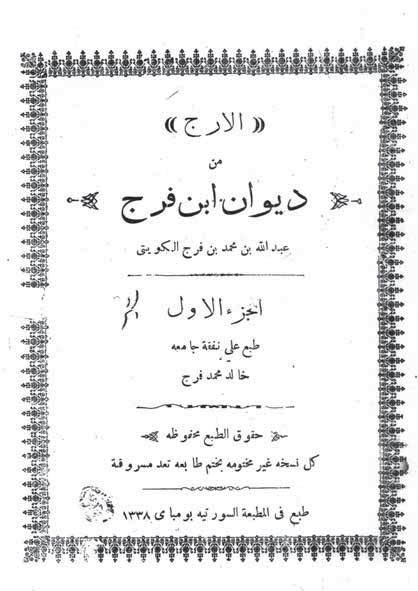 ((الارج))
من
ديوان ابن فرج
عبد الله بن محمد بن فرج الكويتى
الجزء الاول
طبع على نفقة جامعه
خالد محمد فرج
حقوق الطبع محفوظه
كل نسخه غير مختومه بختم طابعه تعد مسروقة
طبع فى المطبعة السورتيه بومباى ١٣٣٨